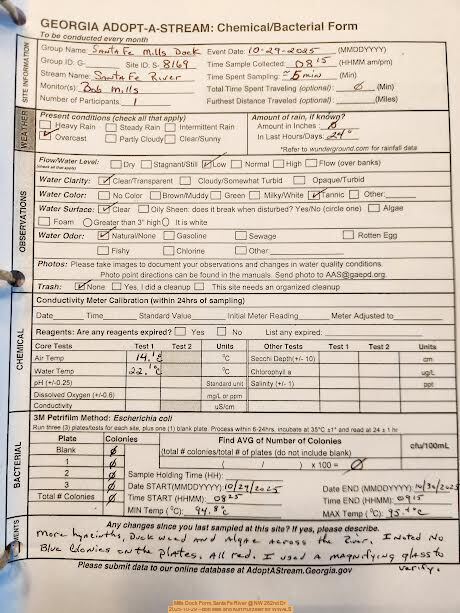 GEORGIA ADOPT-A-STREAM: Chemical/Bacterial Form
To be conducted every month
SITE INFORMATION
Group Name: Santa Fe Mills Dock Event Date: 10-29-2025 (MMDDYYYY)
Group ID: G- Site ID: S- 8169 Time Sample Collected: 0815 (HHMM am/pm)
Stream Name: Santa Fe River Time Spent Sampling: ≈5 min (Min)
Monitor(s): Bob Mills Total Time Spent Traveling (optional): 0 (Min)
Number of Participants: 1 Furthest Distance Traveled (optional): (Miles)
WEATHER
Present conditions (check all that apply) Amount of rain, if known?
Heavy Rain Steady Rain Intermittent Rain Amount in Inches: 0
Overcast Partly Cloudy Clear/Sunny In Last Hours/Days: 24°
*Refer to wunderground.com for rainfall data
OBSERVATIONS
Flow/Water Level: Dry Stagnant/Still Low Normal High Flow (over banks)
(check all that apply)
Water Clarity: Clear/Transparent Cloudy/Somewhat Turbid Opaque/Turbid
Water Color: No Color Brown/Muddy Green Milky/White Tannic Other:
Water Surface: Clear Oily Sheen: does it break when disturbed? Yes/No (circle one) Algae
Foam Greater than 3" high It is white
Water Odor: Natural/None Gasoline Sewage Rotten Egg
Fishy Chlorine Other:
Photos: Please take images to document your observations and changes in water quality conditions.
Photo point directions can be found in the manuals. Send photo to AAS@gaepd.org.
Trash: None Yes, I did a cleanup This site needs an organized cleanup
CHEMICAL
Conductivity Meter Calibration (within 24hrs of sampling)
Date Time Standard Value Initial Meter Reading Meter Adjusted to
Reagents: Are any reagents expired? Yes No List any expired:
Core Tests Test 1 Test 2 Units Other Tests Test 1 Test 2 Units
Air Temp 14.1°C °C Secchi Depth(+/- 10) cm
Water Temp 22.1°C °C Chlorophyll a ug/L
pH (+/-0.25) Standard unit Salinity (+/- 1) ppt
Dissolved Oxygen (+/-0.6) mg/L or ppm
Conductivity uS/cm
BACTERIAL
3M Petrifilm Method: Escherichia coli
Run three (3) plates/tests for each site, plus one (1) blank plate. Process within 6-24hrs, incubate at 35°C ±1° and read at 24 ± 1 hr
Plate Colonies Find AVG of Number of Colonies cfu/100mL
Blank 0 (total # colonies/total # of plates (do not include blank)
1 0 ( / ) x 100 = 0
2 0 Sample Holding Time (HH):
3 0 Date START(MMDDYYYY): 10/29/2025 Date END (MMDDYYYY): 10/30/2025
Total # Colonies 0 Time START (HHMM): 0825 Time END (HHMM): 0915
MIN Temp (°C): 94.8°C MAX Temp (°C): 95.4°C
Any changes since you last sampled at this site? If yes, please describe.
more hyacinths, Duckweed and Algae across the River. I noted No
Blue Colonies on the plates. All red. I used a magnifying glass to
verify.
Please submit data to our online database at AdoptAStream.Georgia.gov
Mills Dock Form, Santa Fe River @ NW 262nd Dr